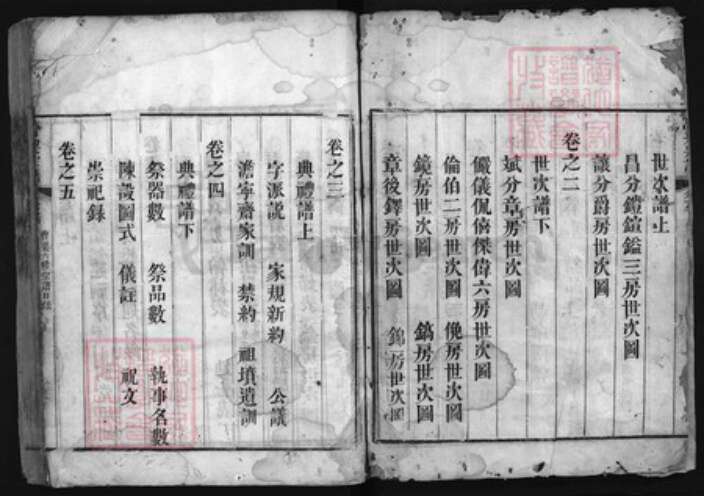 世次譜上
昌分鎧鍹鎰三房世次圖
讓分爵房世次圖
卷之二
世次譜下
斌分章房世次圖
儼儀侃僑傑偉六房世次圖
倫伯二房世次圖 俛房世次圖
鏡房世次圖 鎬房世次圖
章後鐸房世次圖 錦房世次圖
卷之三
典禮譜上
字派說 家規新約 公議
澹寧齋家訓 禁約 祖墳遺訓
卷之四
典禮譜下
祭器數 祭品數 執事名數
陳設圖式 儀註 祝文
崇祀錄
卷之五